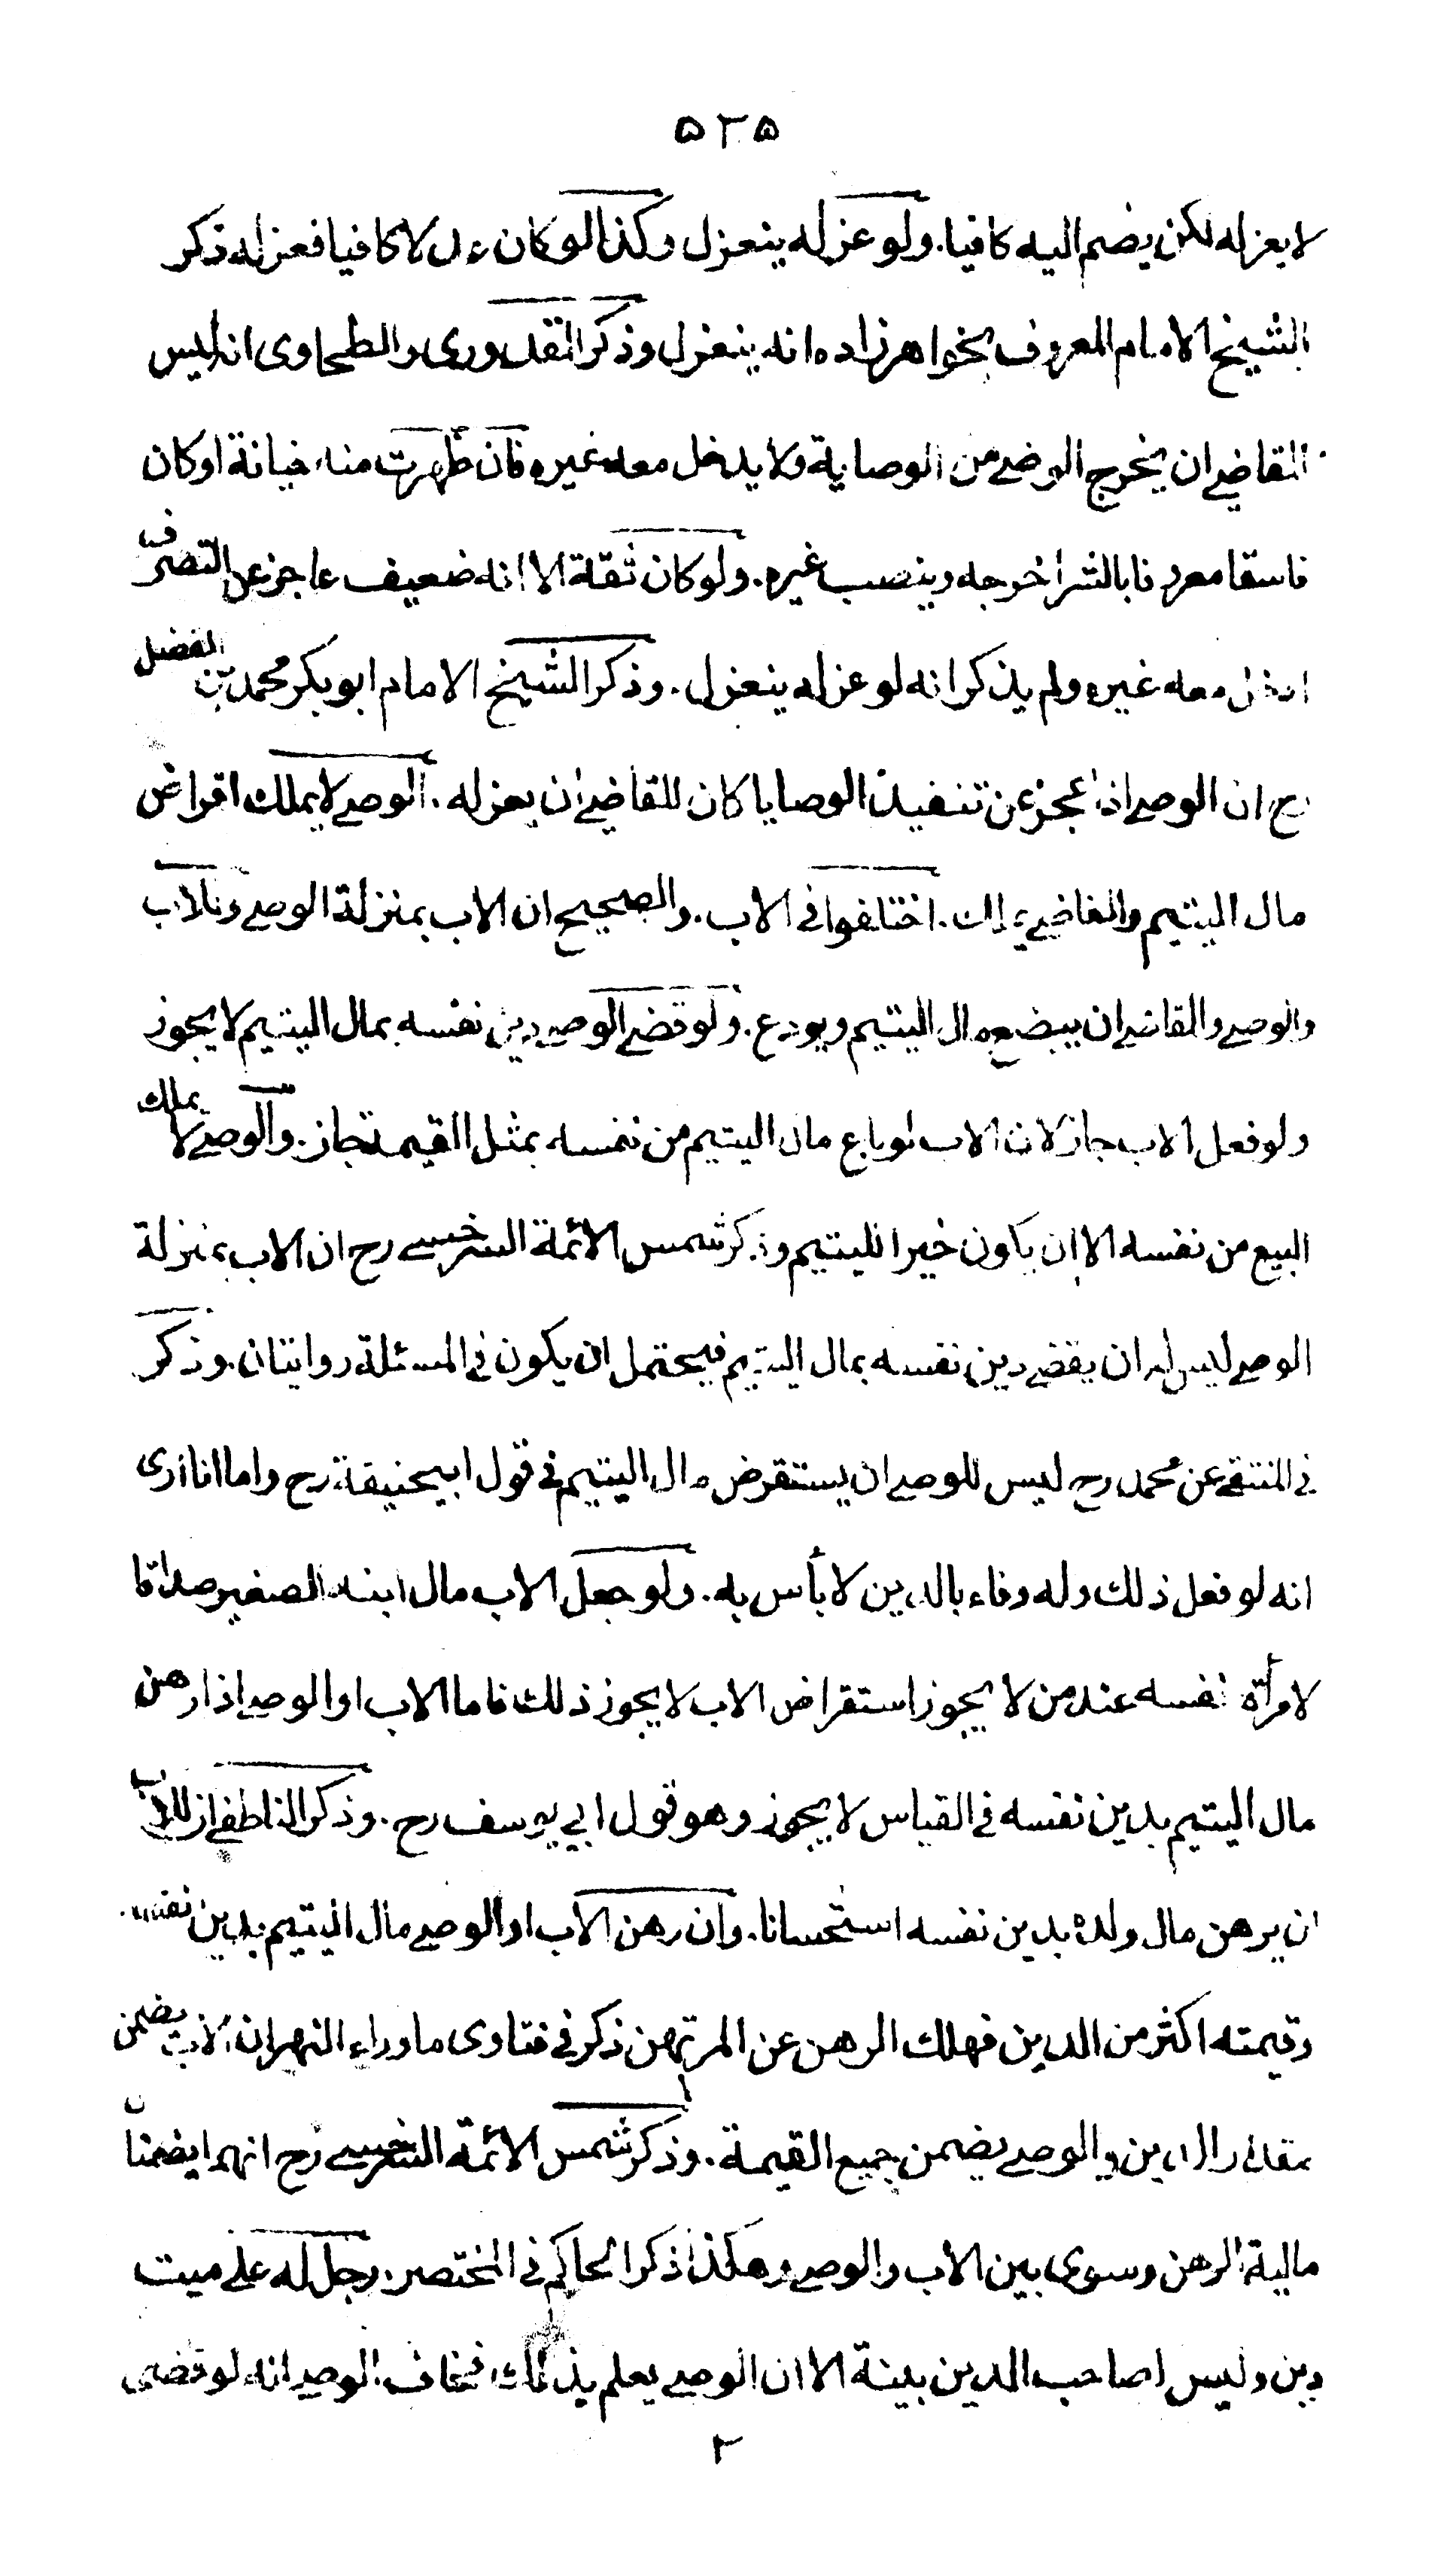 ٥٢٥
لا يعزله لكن يضم اليه كافيا. ولو عزله ينعزل وكذا لو كان عدلا كافيا فعزله ذكر
الشيخ الامام المعروف بخواهر زاده انه ينعزل وذكر القدورى والطحاوى انه ليس
للقاضي ان يخرج الوصي من الوصاية ولا يدخل معه غيره فان ظهرت منه خيانة او كان
فاسقا معروفا بالشر اخرجه وينصب غيره. ولو كان ثقة الا انه ضعيف عاجز عن التصرف
ادخل معه غيره ولم يذكر انه لو عزله ينعزل. وذكر الشيخ الامام ابو بكر محمد بن الفضل
رح ان الوصي اذا عجز عن تنفيذ الوصايا كان للقاضي ان يعزله. الوصي لا يملك اقراض
مال اليتيم والقاضي يملك. اختلفوا في الاب. والصحيح ان الاب بمنزلة الوصي وللاب
والوصي والقاضي ان يبضع مال اليتيم ويودع. ولو قضي الوصي دين نفسه بمال اليتيم لا يجوز
ولو فعل الاب جاز لان الاب لو باع مال اليتيم من نفسه بمثل القيمة جاز. والوصي لا يملك
البيع من نفسه الا ان يكون خيرا لليتيم وذكر شمس الائمة السرخسي رح ان الاب بمنزلة
الوصي ليس له ان يقضي دين نفسه بمال اليتيم فيحتمل ان يكون في المسئلة روايتان. وذكر
في المنتقي عن محمد رح ليس للوصي ان يستقرض مال اليتيم في قول ابيحنيفة رح واما انا ارى
انه لو فعل ذلك وله وفاء بالدين لا بأس به. ولو جعل الاب مال ابنه الصغير صداقا
لامرأة نفسه عند من لا يجوز استقراض الاب لا يجوز ذلك فاما الاب او الوصي اذا رهن
مال اليتيم بدين نفسه في القياس لا يجوز وهو قول ابي يوسف رح. وذكر الناطفي ان للاب
ان يرهن مال ولده بدين نفسه استحسانا. وان رهن الاب او الوصي مال اليتيم بدين نفسه
وقيمته اكثر من الدين فهلك الرهن عن المرتهن ذكر في فتاوى ما وراء النهر ان الاب يضمن
مقدار الدين والوصي يضمن جميع القيمة. وذكر شمس الائمة السرخسي رح انهما يضمنان
مالية الرهن وسوى بين الاب والوصي وهكذا ذكر الحاكم في المختصر. رجل له علي ميت
دين وليس لصاحب الدين بينة الا ان الوصي يعلم بذلك فخاف الوصي انه لو قضى
٢